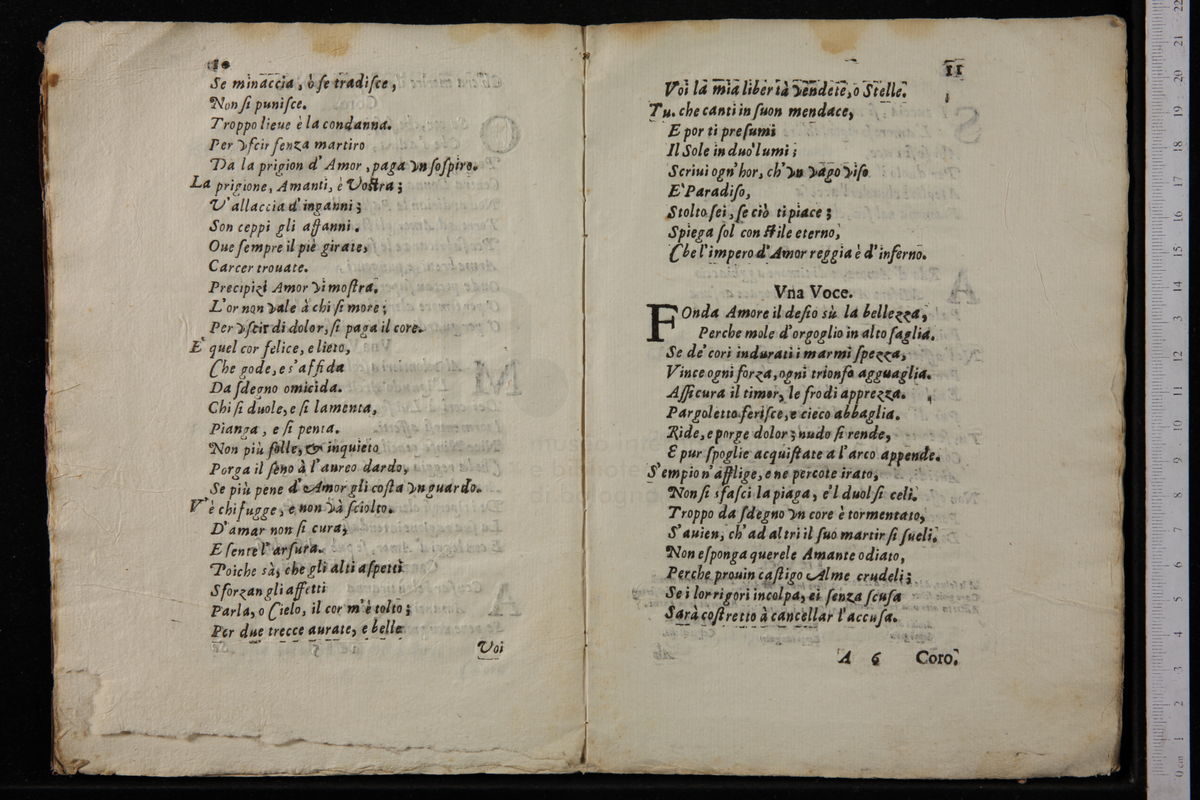 10
Se minaccia, ò ſe tradiſce,
Non ſi puniſce.
Troppo lieue è la condanna.
Per vſcir ſenza martiro
Da la prigion d'Amor, paga vn ſoſpiro.
La prigione, Amanti, è Voſtra;
V'allaccia d'inganni;
Son ceppi gli affanni.
Oue ſempre il piè girate,
Carcer trouate.
Precipizi Amor vi moſtra.
L'or non vale à chi ſi more;
Per vſcir di dolor, ſi paga il core.
E' quel cor felice, e lieto,
Che gode, e s'affida
Da ſdegno omicida.
Chi ſi duole, e ſi lamenta,
Pianga, e ſi penta.
Non più folle, & inquieto
Porga il ſeno à l'aureo dardo,
Se più pene d'Amor gli coſta vn guardo.
V'è chi fugge, e non và ſciolto.
D'amar non ſi cura,
E ſente l'arſura.
Poiche sà, che gli alti aſpetti
Sforzan gli affetti
Parla, o Cielo, il cor m'è tolto;
Per due trecce aurate, e belle
Voi
11
Voi la mia libertà vendete, o Stelle.
Tu. che canti in ſuon mendace,
E por ti preſumi
Il Sole in duo lumi;
Scriui ogn'hor, ch'vn vago viſo
E' Paradiſo,
Stolto ſei, ſe ciò ti piace;
Spiega ſol con ſtile eterno,
Che l'impero d'Amor reggia è d'inferno.
Vna Voce.
Fonda Amore il deſio sù la bellezza,
Perche mole d'orgoglio in alto ſaglia.
Se de' cori indurati i marmi ſpezza,
Vince ogni forza, ogni trionfo agguaglia.
Aſſicura il timor, le frodi apprezza.
Pargoletto feriſce, e cieco abbaglia.
Ride, e porge dolor; nudo ſi rende,
E pur ſpoglie acquiſtate a l'arco appende.
S'empio n'afflige, e ne percote irato,
Non ſi sfaſci la piaga, e'l duol ſi celi.
Troppo da ſdegno vn core è tormentato,
S'auien, ch'ad altri il ſuo martir ſi ſueli.
Non eſponga querele Amante odiato,
Perche prouin caſtigo Alme crudeli;
Se i lor rigori incolpa, ei ſenza ſcuſa
Sarà coſtretto à cancellar l'accuſa.
A 6 Coro.